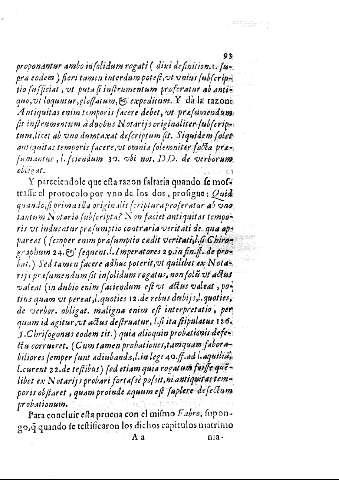 93
proponantur ambo insolidum rogati ( dixi definitione. su-
pra eodem ) fieri tamen interdum potest, vt vnius subscrip-
tio sufficiat, vt puta si instrumentum proferatur ab anti-
quo, vt loquuntur, glossatum, & expeditum. Y dà la razon:
Antiquitas enim temporis facere debet, vt præsumendum
sit instrumentum à duobus Notarijs originaliter subscrip-
tum, licet ab vno dumtaxat descriptum sit. Siquidem solet
antiquitas temporis facere, vt omnia solemniter facta præ-
sumantur, l. sciendum 30. vbi not. DD. de verborum
obligat.
Y pareciendole que esta razon faltaria quando se mos-
trasse el protocolo por vno de los dos, prosigue: Quid
quando, si prima illa originalis scriptura proferatur ab vno
tantum Notario subscripta? Non faciet antiquitas tempo-
ris vt inducatur præsumptio contraria veritati ei. quæ ap-
pareat ( semper enim præsumptio cadit veritati, l. si Chiro-
graphum 24. & sequent. l. Imperatores 29. in fin. ff. de pro-
bat.) Sed tamen facere adhuc poterit, vt quilibet ex Nota-
rijs præsumendum sit insolidum rogatus, non solũ vt actus
valeat (in dubio enim faciendum est vt actus valeat, po-
tius quam vt pereat, l. quoties 12. de rebus dubijs, l. quoties,
de verbor. obligat. maligna enim est interpretatio, per
quam id agitur, vt actus destruatur, l. si ita stipulatus 126.
§. Chrisogonus eodem tit.) quia alioquin probationis defe-
ctu corrueret. (Cum tamen probationes, tamquam fabora-
biliores semper sunt adiubandæ, l. in lege 40. ff. ad l. aquiliã,
l. curent 22. de testibus) sed etiam quia rogatum fuisse quẽ-
libet ex Notarijs probari fortasse possit, ni antiquitas tem-
poris obstaret, quam proinde æquum est suplere defectum
probationum.
Para concluir esta prueva con el mismo Fabro, supon-
go, q̃ quando se testificaron los dichos capitulos matrimo
A a
nia-